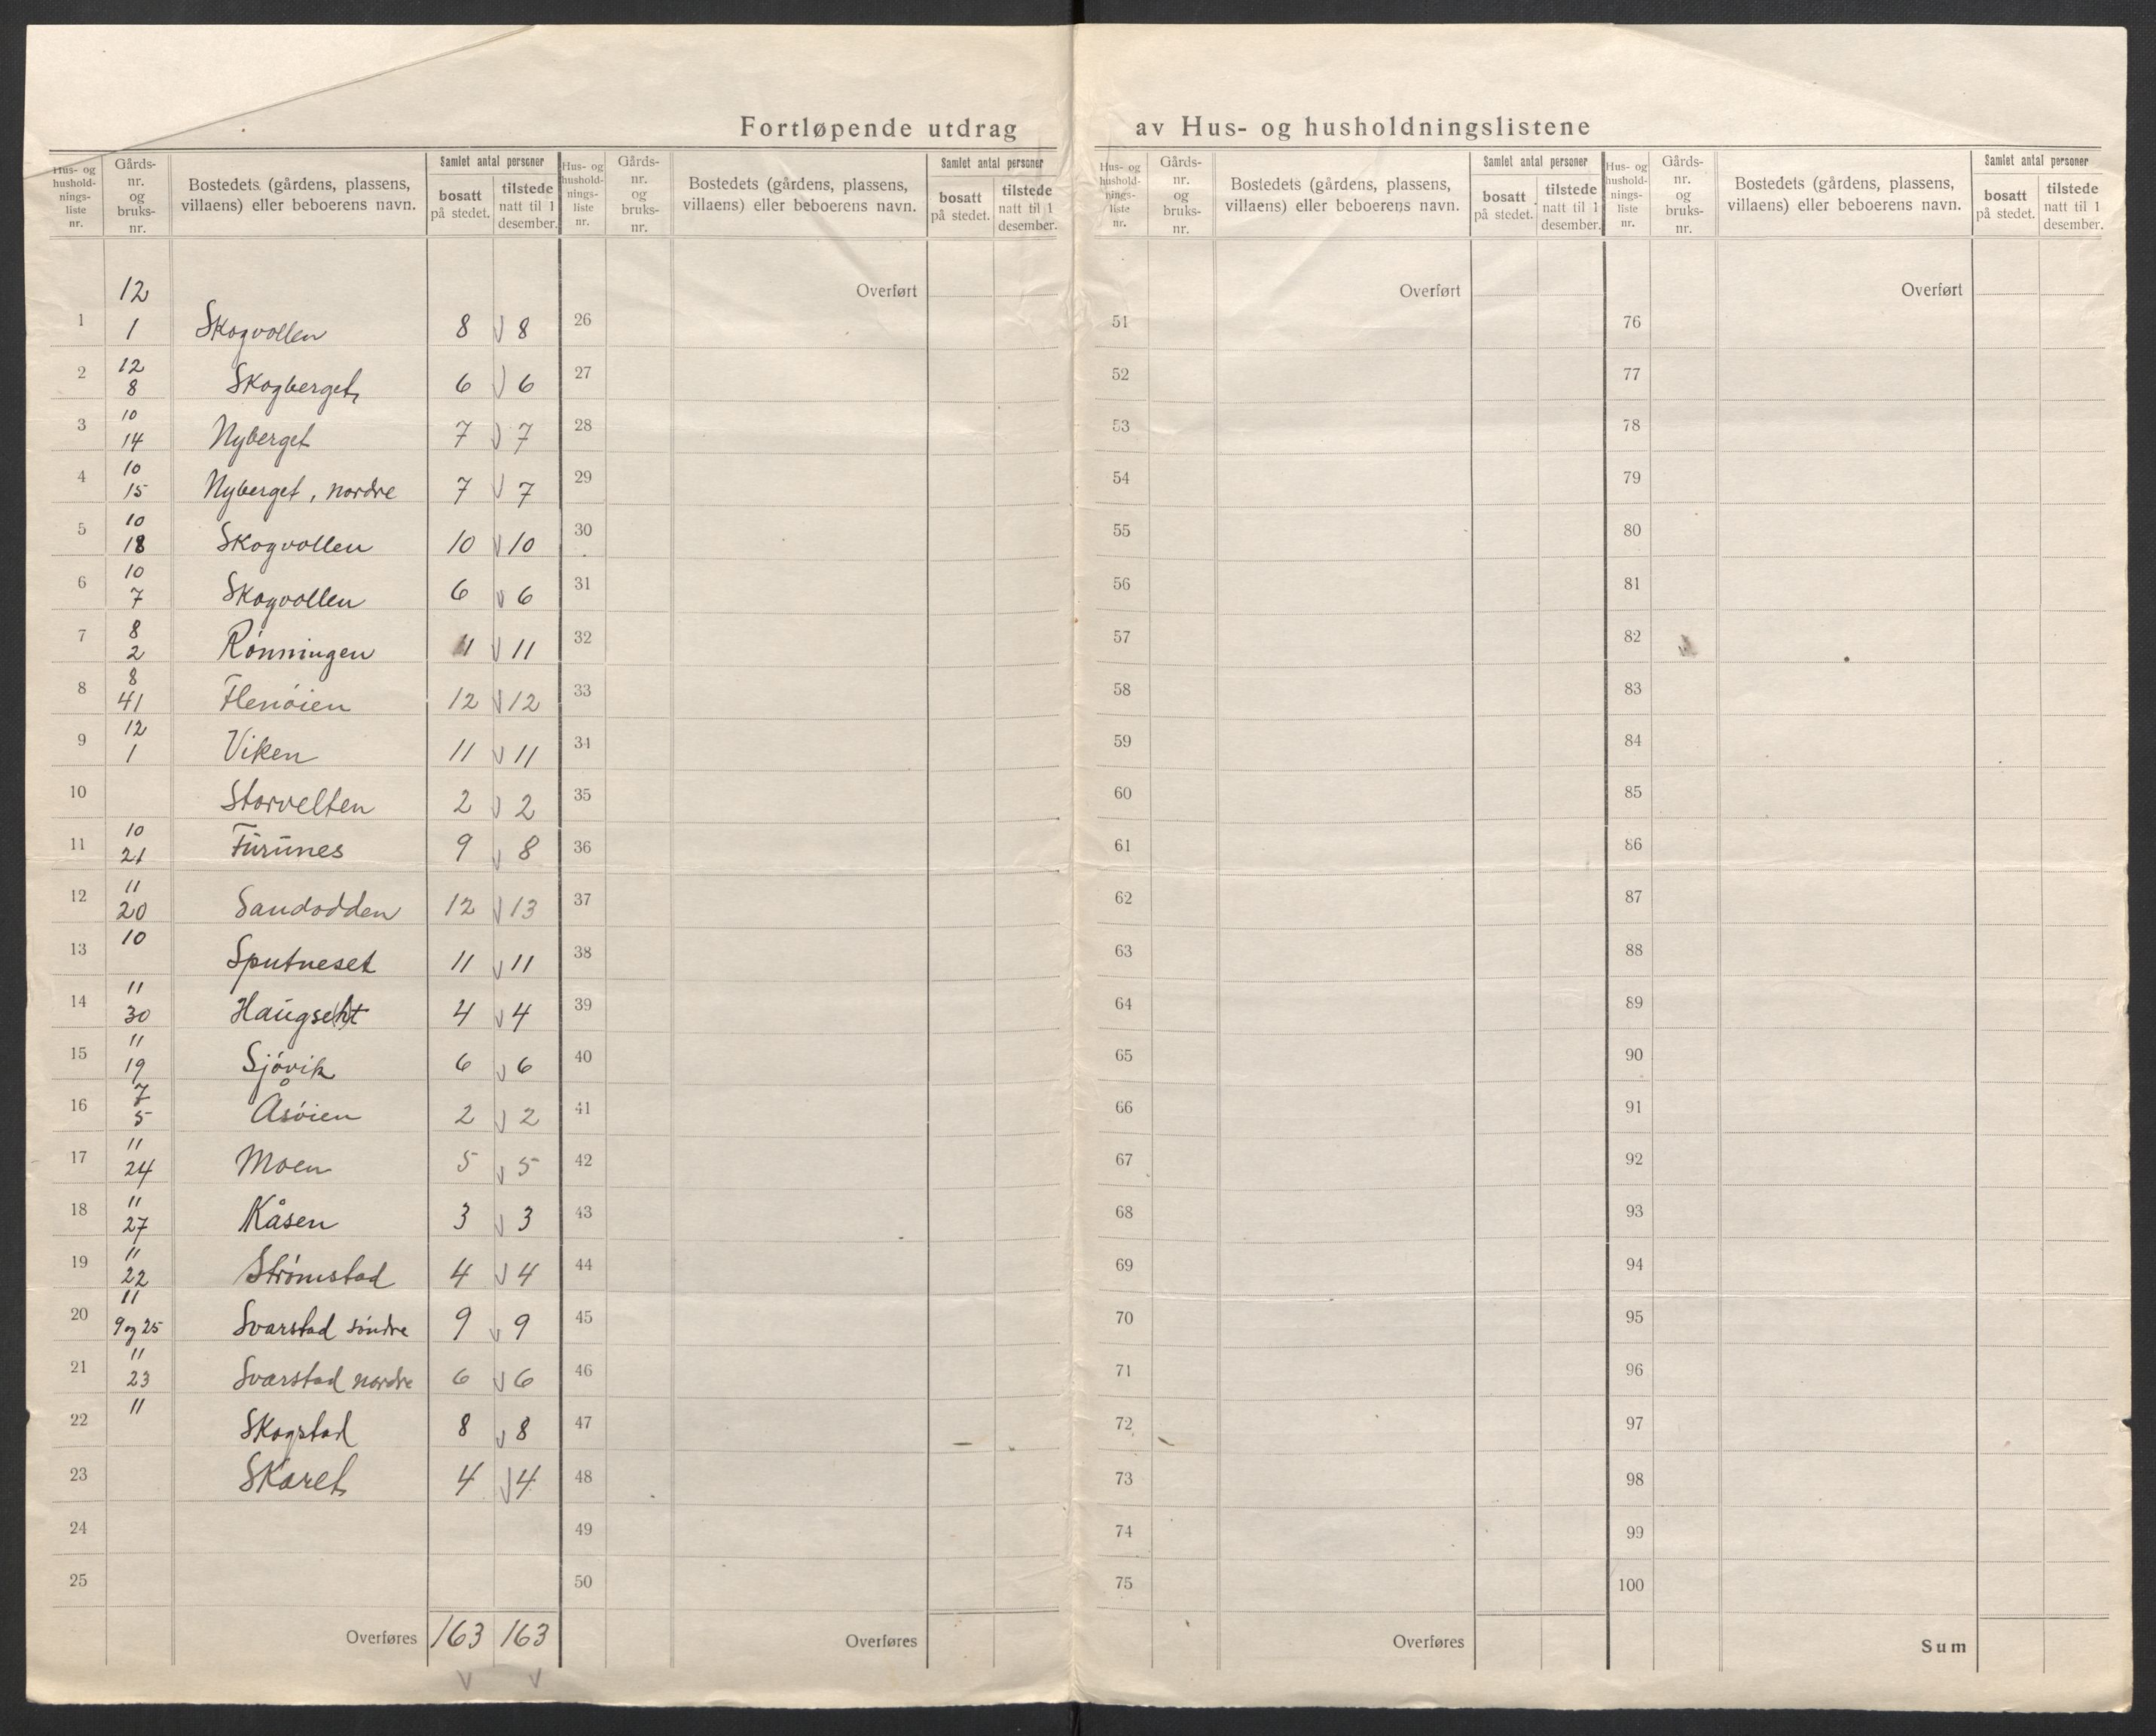 Fortløpende utdrag av Hus- og husholdningslistene
Hus- og hushold- nings- liste nr. | Gårds- nr. og bruks- nr. | Bostedets (gårdens, plassens, villaens) eller beboerens navn. | Samlet antal personer | bosatt på stedet. | tilstede natt til 1 desember.
1 | 12 1 | Skogvollen | 8 | 8
2 | 12 8 | Skogberget | 6 | 6
3 | 10 14 | Nyberget | 7 | 7
4 | 10 15 | Nyberget, nordre | 7 | 7
5 | 10 18 | Skogvollen | 10 | 10
6 | 10 7 | Skogvollen | 6 | 6
7 | 8 2 | Rønningen | 11 | 11
8 | 8 41 | Flenøien | 12 | 12
9 | 12 1 | Viken | 11 | 11
10 | Storvelten | 2 | 2
11 | 10 21 | Furunes | 9 | 8
12 | 11 20 | Sandodden | 12 | 13
13 | 10 | Sputneset | 11 | 11
14 | 11 30 | 4 | 4
15 | 11 19 | Sjøvik | 6 | 6
16 | 7 5 | Åsøien | 2 | 2
17 | 11 24 | Moen | 5 | 5
18 | 11 27 | Kåsen | 3 | 3
19 | 11 22 | Strømstad | 4 | 4
20 | 11 9 og 25 | Svarstad søndre | 9 | 9
21 | 11 23 | Svarstad nordre | 6 | 6
22 | 11 | Skogstad | 8 | 8
23 | Skaret | 4 | 4
24
25
Overføres | 163 | 163
Hus- og hushold- nings- liste nr. | Gårds- nr. og bruks- nr. | Bostedets (gårdens, plassens, villaens) eller beboerens navn. | Samlet antal personer | bosatt på stedet. | tilstede natt til 1 desember.
Overført
26
27
28
29
30
31
32
33
34
35
36
37
38
39
40
41
42
43
44
45
46
47
48
49
50
Overføres
Hus- og hushold- nings- liste nr. | Gårds- nr. og bruks- nr. | Bostedets (gårdens, plassens, villaens) eller beboerens navn. | Samlet antal personer | bosatt på stedet. | tilstede natt til 1 desember.
Overført
51
52
53
54
55
56
57
58
59
60
61
62
63
64
65
66
67
68
69
70
71
72
73
74
75
Overføres
Hus- og hushold- nings- liste nr. | Gårds- nr. og bruks- nr. | Bostedets (gårdens, plassens, villaens) eller beboerens navn. | Samlet antal personer | bosatt på stedet. | tilstede natt til 1 desember.
Overført
76
77
78
79
80
81
82
83
84
85
86
87
88
89
90
91
92
93
94
95
96
97
98
99
100
Sum